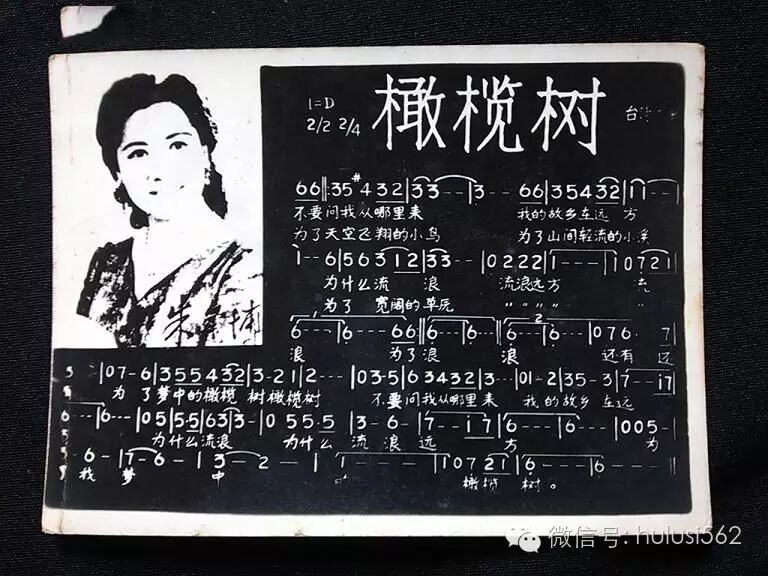 橄榄树
1=D
2/2 2/4
台
66‖:35 #432|33--|3-- 66|35432|1--
不要问我从哪里来 我的故乡在远方
为了天空飞翔的小鸟 为了山间轻流的小溪
1--6|563 12|33--|0222|1---|1--|0721
为什么流 浪 流浪远方 流
为了 宽阔的草原 " " " " "
6---|6--66‖6---|6---|6---|076·7
浪 为了浪 浪 还有 还
|07-6|355432|3-21|2---|03-5|63432|3--|01-2|35-3|7--17
为了梦中的橄榄树橄榄树 不要问我从哪里来 我的故乡在远
|6---|055·5|635-0|055·5|3-6-|7--17|6---|6---|005-
为什么流浪 为什么流浪远 方 为
-6-|7-6-|3-2-|1---|1---|0721|6---|6---‖
我梦 中 的 橄榄 树。
微信号: hulusi562